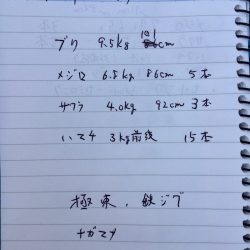 ブリ 9.5kg 101cm
メジロ 6.5kg 86cm 5本
サワラ 4.0kg 92cm 3本
3kg前後 15本
極東、鉄ジグ